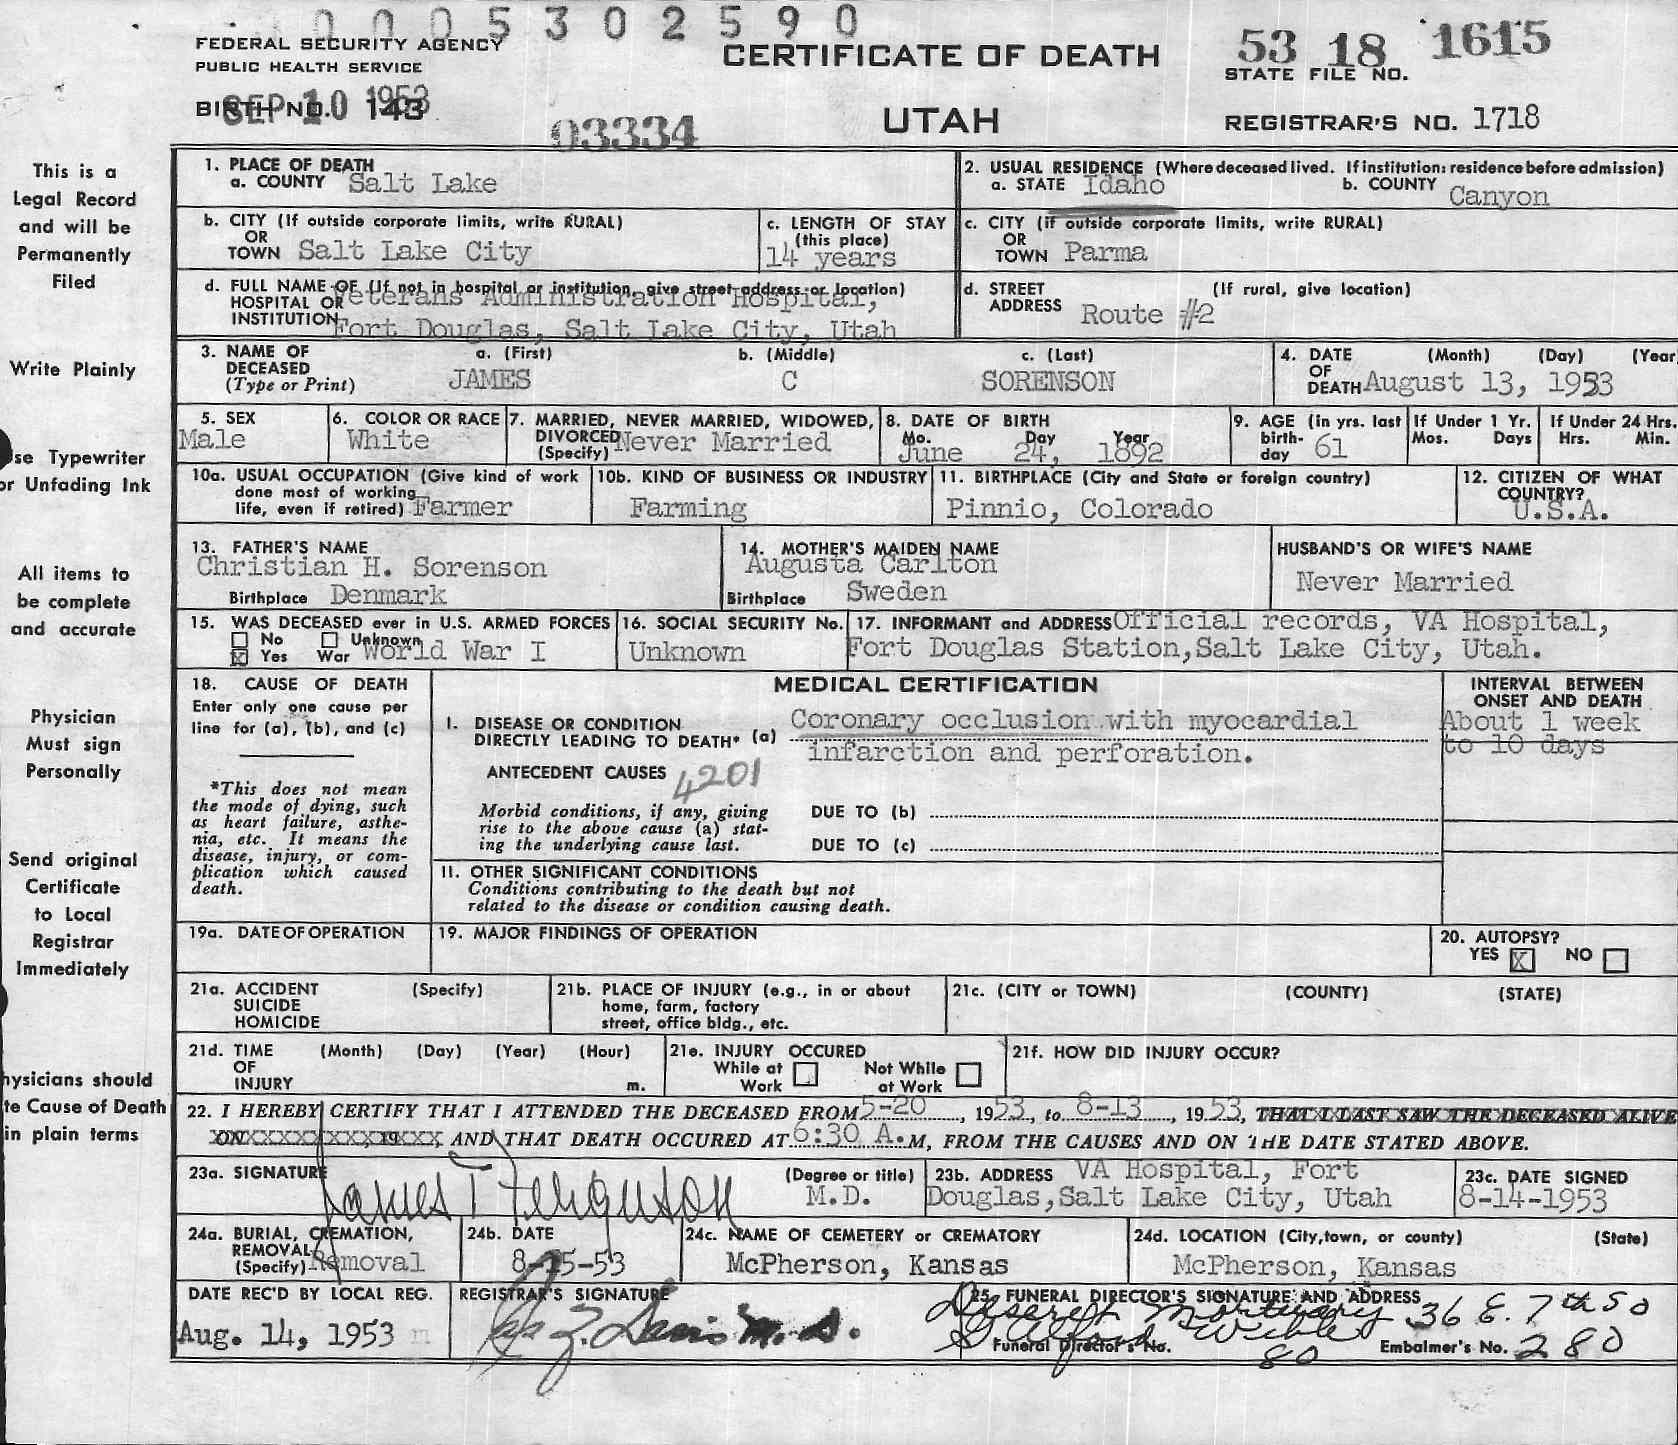 0005302590
FEDERAL SECURITY AGENCY
PUBLIC HEALTH SERVICE
CERTIFICATE OF DEATH
53 18 1615
STATE FILE NO.
BIRTH NO. 143
SEP 10 1953
03334
UTAH
REGISTRAR'S NO. 1718
This is a
Legal Record
and will be
Permanently
Filed
Write Plainly
se Typewriter
or Unfading Ink
All items to
be complete
and accurate
Physician
Must sign
Personally
Send original
Certificate
to Local
Registrar
Immediately
hysicians should
te Cause of Death
in plain terms
1. PLACE OF DEATH
a. COUNTY Salt Lake
2. USUAL RESIDENCE (Where deceased lived. If institution: residence before admission)
a. STATE Idaho b. COUNTY Canyon
b. CITY (If outside corporate limits, write RURAL)
OR
TOWN Salt Lake City
c. LENGTH OF STAY
(this place)
14 years
c. CITY (if outside corporate limits, write RURAL)
OR
TOWN Parma
d. FULL NAME OF (If not in hospital or institution, give street address or location)
HOSPITAL OR Veterans Administration Hospital,
INSTITUTION Fort Douglas, Salt Lake City, Utah
d. STREET (If rural, give location)
ADDRESS Route #2
3. NAME OF DECEASED
(Type or Print)
a. (First) b. (Middle) c. (Last)
JAMES C SORENSON
4. DATE (Month) (Day) (Year
OF
DEATH August 13, 1953
5. SEX
Male
6. COLOR OR RACE
White
7. MARRIED, NEVER MARRIED, WIDOWED,
DIVORCED Never Married
(Specify)
8. DATE OF BIRTH
Mo. Day Year
June 24, 1892
9. AGE (in yrs. last
birth-
day 61
If Under 1 Yr.
Mos. Days
If Under 24 Hrs.
Hrs. Min.
10a. USUAL OCCUPATION (Give kind of work
done most of working
life, even if retired) Farmer
10b. KIND OF BUSINESS OR INDUSTRY
Farming
11. BIRTHPLACE (City and State or foreign country)
Pinnio, Colorado
12. CITIZEN OF WHAT
COUNTRY?
U.S.A.
13. FATHER'S NAME
Christian H. Sorenson
Birthplace Denmark
14. MOTHER'S MAIDEN NAME
Augusta Carlton
Birthplace Sweden
HUSBAND'S OR WIFE'S NAME
Never Married
15. WAS DECEASED ever in U.S. ARMED FORCES
No Unknown
X Yes War World War I
16. SOCIAL SECURITY No.
Unknown
17. INFORMANT and ADDRESS Official records, VA Hospital,
Fort Douglas Station, Salt Lake City, Utah.
18. CAUSE OF DEATH
Enter only one cause per
line for (a), (b), and (c)
*This does not mean
the mode of dying, such
as heart failure, asthe-
nia, etc. It means the
disease, injury, or com-
plication which caused
death.
MEDICAL CERTIFICATION
I. DISEASE OR CONDITION
DIRECTLY LEADING TO DEATH* (a) Coronary occlusion with myocardial
infarction and perforation.
ANTECEDENT CAUSES 4201
Morbid conditions, if any, giving
rise to the above cause (a) stat-
ing the underlying cause last.
DUE TO (b)
DUE TO (c)
INTERVAL BETWEEN
ONSET AND DEATH
About 1 week
to 10 days
11. OTHER SIGNIFICANT CONDITIONS
Conditions contributing to the death but not
related to the disease or condition causing death.
19a. DATE OF OPERATION
19. MAJOR FINDINGS OF OPERATION
20. AUTOPSY?
YES X NO
21a. ACCIDENT (Specify)
SUICIDE
HOMICIDE
21b. PLACE OF INJURY (e.g., in or about
home, farm, factory
street, office bldg., etc.
21c. (CITY or TOWN) (COUNTY) (STATE)
21d. TIME (Month) (Day) (Year) (Hour)
OF
INJURY m.
21e. INJURY OCCURED
While at Work
Not While at Work
21f. HOW DID INJURY OCCUR?
22. I HEREBY CERTIFY THAT I ATTENDED THE DECEASED FROM 5-20, 1953, to 8-13, 1953, THAT I LAST SAW THE DECEASED ALIVE
ON XXXXXXXXXX 19XXX AND THAT DEATH OCCURED AT 6:30 A.M, FROM THE CAUSES AND ON THE DATE STATED ABOVE.
23a. SIGNATURE (Degree or title)
James T Ferguson M.D.
23b. ADDRESS VA Hospital, Fort
Douglas, Salt Lake City, Utah
23c. DATE SIGNED
8-14-1953
24a. BURIAL, CREMATION,
REMOVAL
(Specify) Removal
24b. DATE
8-15-53
24c. NAME OF CEMETERY OR CREMATORY
McPherson, Kansas
24d. LOCATION (City, town, or county) (State)
McPherson, Kansas
DATE REC'D BY LOCAL REG.
Aug. 14, 1953
REGISTRAR'S SIGNATURE
M.D.
25. FUNERAL DIRECTOR'S SIGNATURE AND ADDRESS
Deseret Mortuary 36 E. 7th So
Funeral Director's No. 80
Embalmer's No. 280